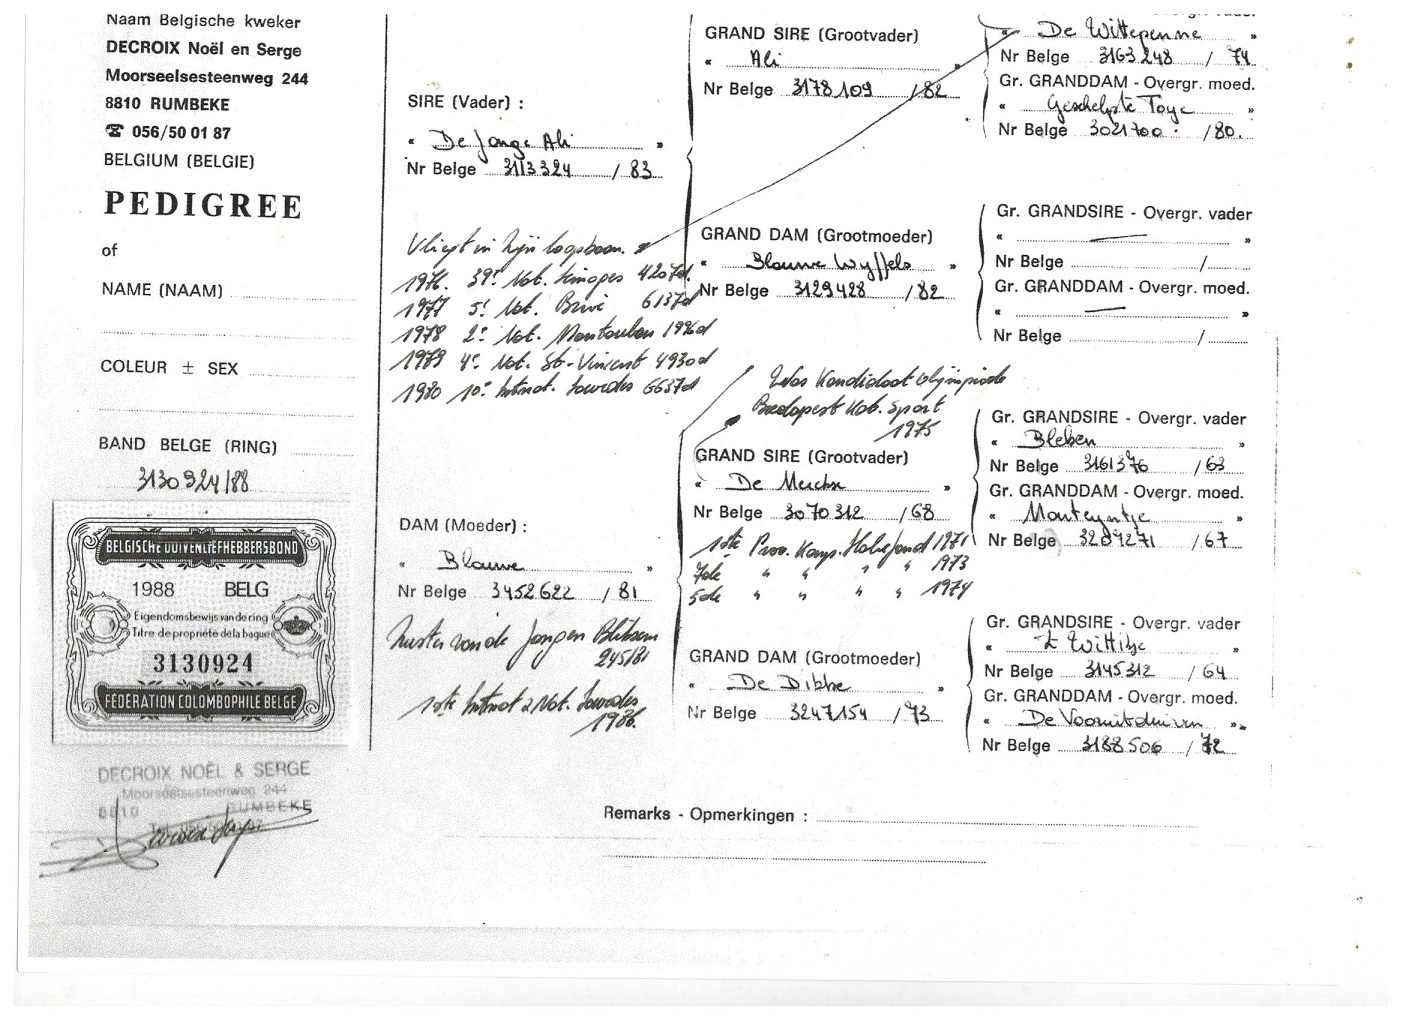 Naam Belgische kweker
DECROIX Noël en Serge
Moorseelsesteenweg 244
8810 RUMBEKE
☎ 056/50 01 87
BELGIUM (BELGIE)
PEDIGREE
of
NAME (NAAM)
COLEUR ± SEX
BAND BELGE (RING)
3130924/88
BELGISCHE DUIVENLIEFHEBBERSBOND
1988 BELG
Eigendomsbewijs van de ring
Titre de propriété de la bague
3130924
FÉDÉRATION COLOMBOPHILE BELGE
DECROIX NOËL & SERGE
Moorseelsesteenweg 244
8810 RUMBEKE
SIRE (Vader) :
" De Jonge Ali "
Nr Belge 3113324 / 83
Vliegt in zijn loopbaan.
1976 39e Nat. Limoges 4207d.
1977 5e Nat. Brive 6137d
1978 2e Nat. Montauban 1996d
1979 4e Nat. St-Vincent 4930d
1980 10e Internat. Lourdes 6637d
DAM (Moeder) :
" Blauwe "
Nr Belge 3452622 / 81
Zuster van de Jongen Bliksem
245/81
1ste Internat 2 Nat. Lourdes
1986.
GRAND SIRE (Grootvader)
" Ali "
Nr Belge 3178109 / 82
GRAND DAM (Grootmoeder)
" Blauwe Wyffels "
Nr Belge 3129428 / 82
Was Kandidaat olympiade
Budapest Kat. Sport
1975
GRAND SIRE (Grootvader)
" De Merckx "
Nr Belge 3070312 / 68
1ste Prov. Kamp. Halve fond 1971
7de " " " " 1973
5de " " " " 1974
GRAND DAM (Grootmoeder)
" De Dikke "
Nr Belge 3247154 / 73
" De Wittepenne "
Nr Belge 3163248 / 74
Gr. GRANDDAM - Overgr. moed.
" Geschelpte Toye "
Nr Belge 3021700 / 80.
Gr. GRANDSIRE - Overgr. vader
" — "
Nr Belge /
Gr. GRANDDAM - Overgr. moed.
" — "
Nr Belge /
Gr. GRANDSIRE - Overgr. vader
" Bleken "
Nr Belge 3161376 / 63
Gr. GRANDDAM - Overgr. moed.
" "
Nr Belge 3209271 / 67
Gr. GRANDSIRE - Overgr. vader
" 't Wittitje "
Nr Belge 3145312 / 64
Gr. GRANDDAM - Overgr. moed.
" De Vooruitduiven "
Nr Belge 3188506 / 72
Remarks - Opmerkingen :